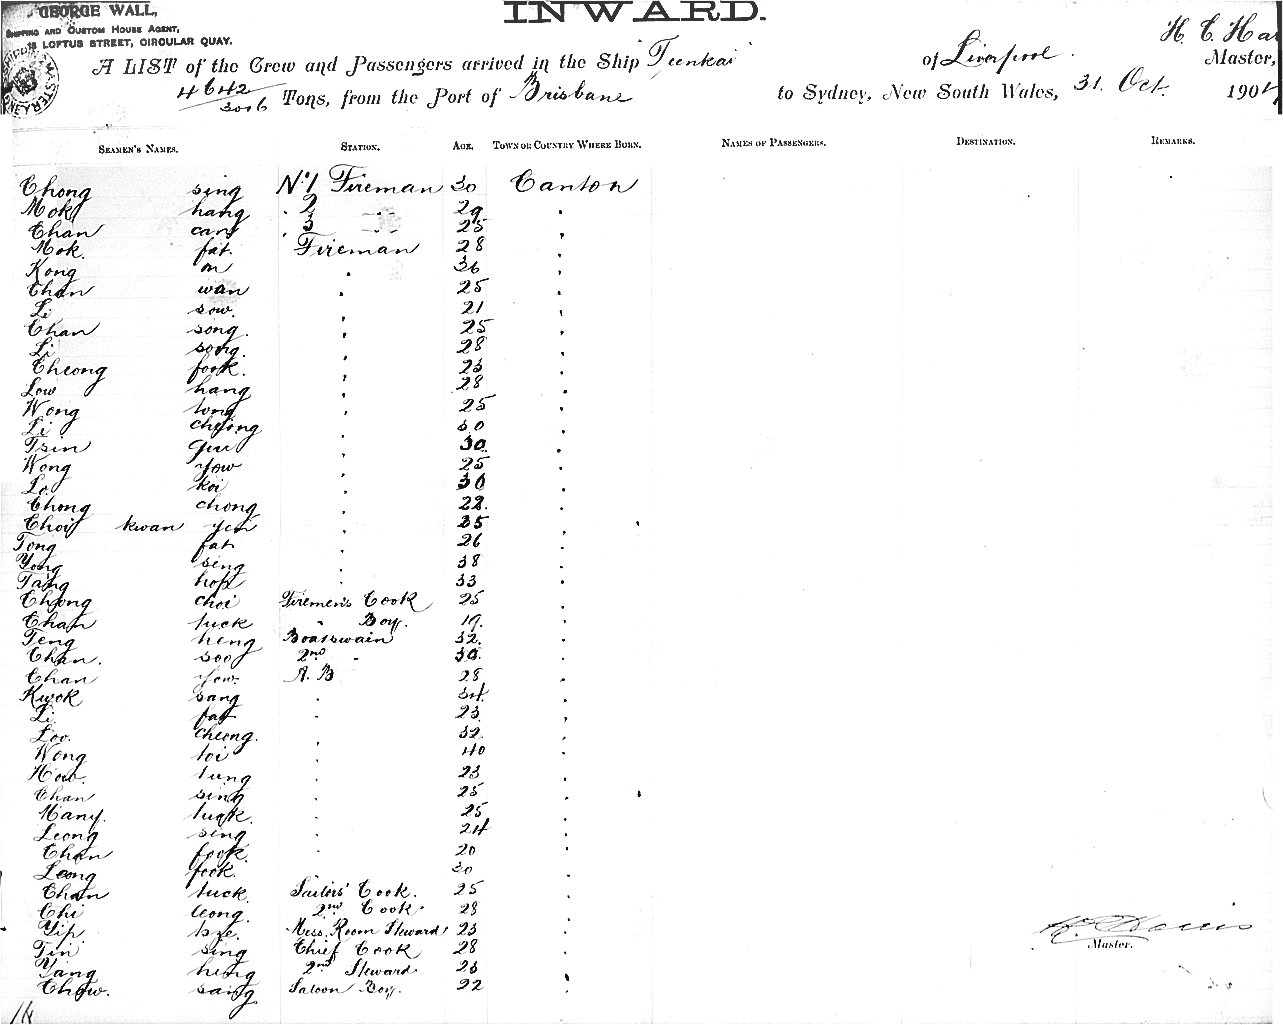 GEORGE WALL,
SHIPPING AND CUSTOM HOUSE AGENT,
18 LOFTUS STREET, CIRCULAR QUAY.
INWARD.
H. C. Har
A LIST of the Crew and Passengers arrived in the Ship Teenkai of Liverpool Master,
4642
3006 Tons, from the Port of Brisbane to Sydney, New South Wales, 31. Oct. 1904
SEAMEN'S NAMES. STATION. AGE. TOWN OR COUNTRY WHERE BORN. NAMES OF PASSENGERS. DESTINATION. REMARKS.
Chong sing No. 1 Fireman 30 Canton
Mok hang " 2 " 29 "
Chan " 3 " 25 "
Mok fat. Fireman 28 "
Kong on " 36 "
Chan wan " 25 "
Li sow. " 21 "
Chan song. " 25 "
Li song. " 28 "
Cheong fook. " 23 "
Low hang " 28 "
Wong tong " 25 "
Li cheong " 30 "
Tsin " 30 "
Wong yow " 25 "
Lo. koi " 30 "
Chong chong " 22. "
Choi kwan yen " 35 "
Tong fat " 26 "
Yong sing " 38 "
Tang hop " 33 "
Chong choi Firemen's Cook 25 "
Chan tuck " Boy. 19. "
Teng heng Boatswain 32. "
Chan. soo 2nd " 30. "
Chan yow. A. B 28 "
Kwok sang " 34. "
Li fat " 23. "
Loo. cheong. " 32. "
Wong toi " 40 "
How. tung " 23 "
Chan sing " 25 "
Many. tuck. " 25 "
Leong sing " 24 "
Chan fook. " 20 "
Leong fook. " 30 "
Chan tuck. Sailors' Cook. 25 "
Chi leong. 2nd Cook. 28 "
Yip Mess Room Steward 23 "
Tin sing Chief Cook 28 "
Yang heng 2nd Steward 23 "
Chow. sang Saloon Boy. 22 "
Master.